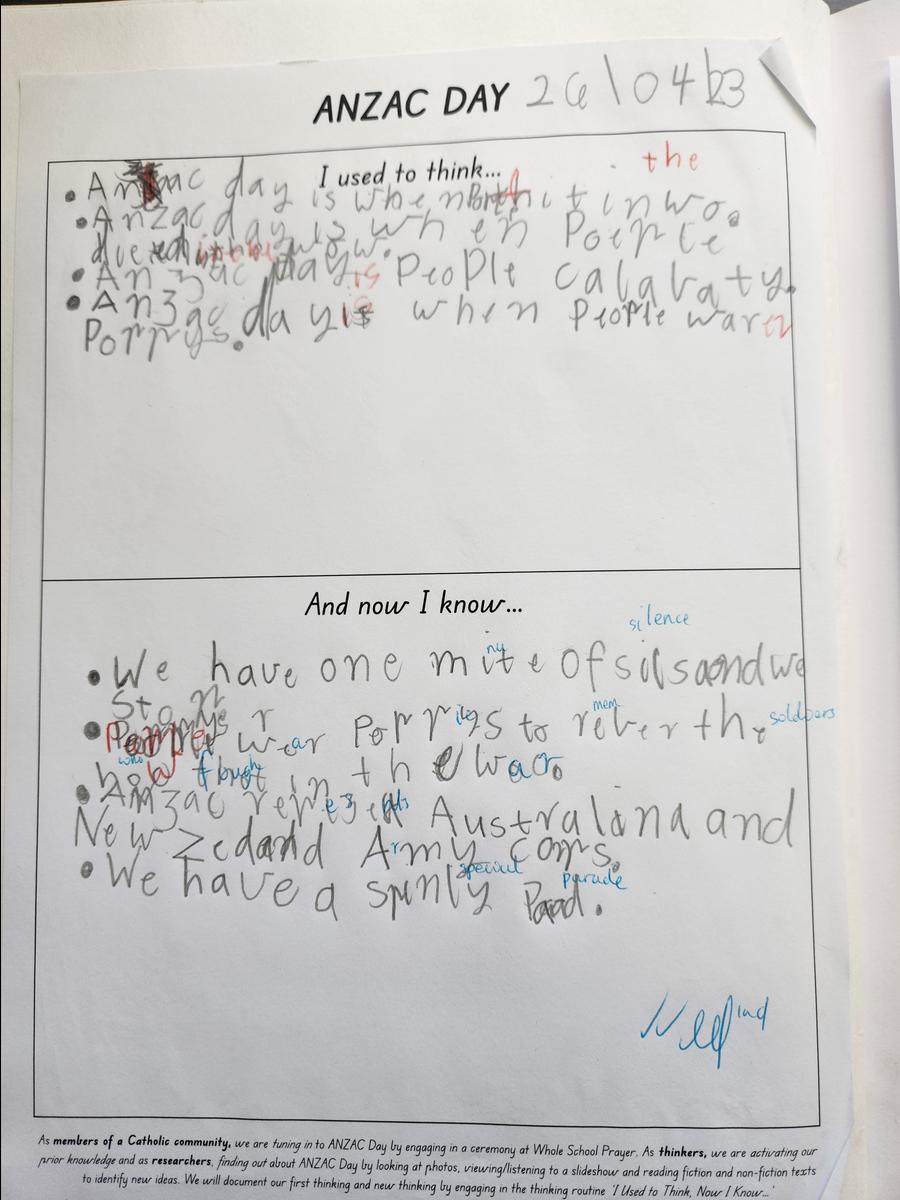 ANZAC DAY 26/04/23
I used to think...
the
• Anzac day is when in wo.
• Anzac day is when Poeple
died in
• Anzac day is People calabaty.
• Anzac day is when People waren
Porrys.
And now I know...
silence
• We have one mite of silsaond we
Stop
• People wear Porrys to reber the soldiers
who fough in the war.
• Anzac Australind and
New Zedand Army corrs.
special parade
• We have a spinly Paad.
As members of a Catholic community, we are tuning in to ANZAC Day by engaging in a ceremony at Whole School Prayer. As thinkers, we are activating our
prior knowledge and as researchers, finding out about ANZAC Day by looking at photos, viewing/listening to a slideshow and reading fiction and non-fiction texts
to identify new ideas. We will document our first thinking and new thinking by engaging in the thinking routine 'I Used to Think, Now I Know...'